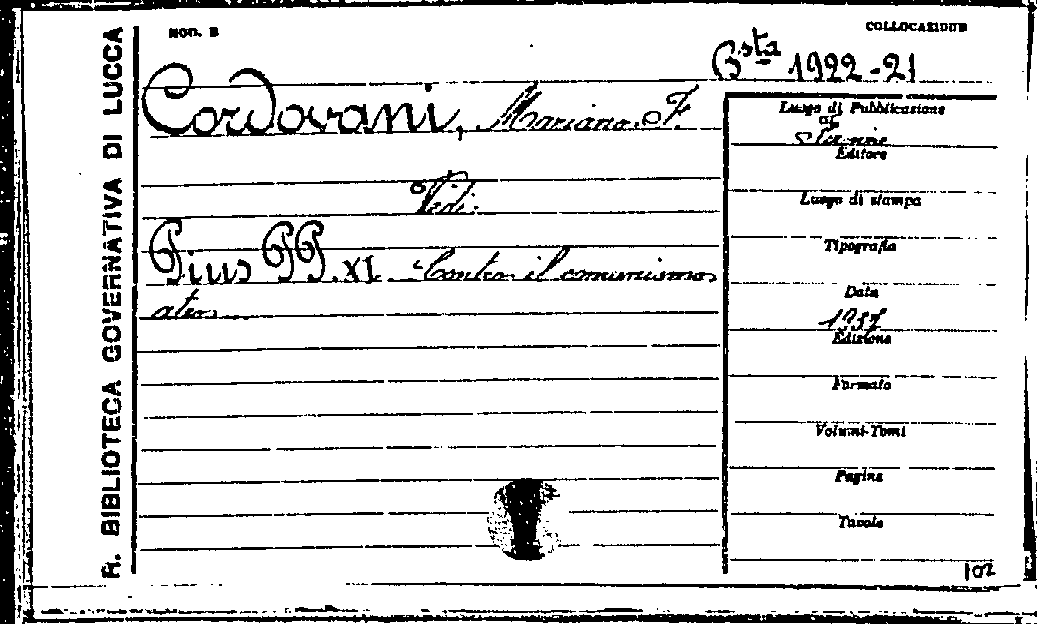 R. BIBLIOTECA GOVERNATIVA DI LUCCA
MOD. B
COLLOCAZIONE
Bsta 1922-21
Cordovani, Mariano F.
Vedi:
Pius PP. XI. Contro il comunismo
ateo
Luogo di Pubblicazione
Firenze
Editore
Luogo di stampa
Tipografia
Data
1937
Edizione
Formato
Volumi-Tomi
Pagine
Tavole
102